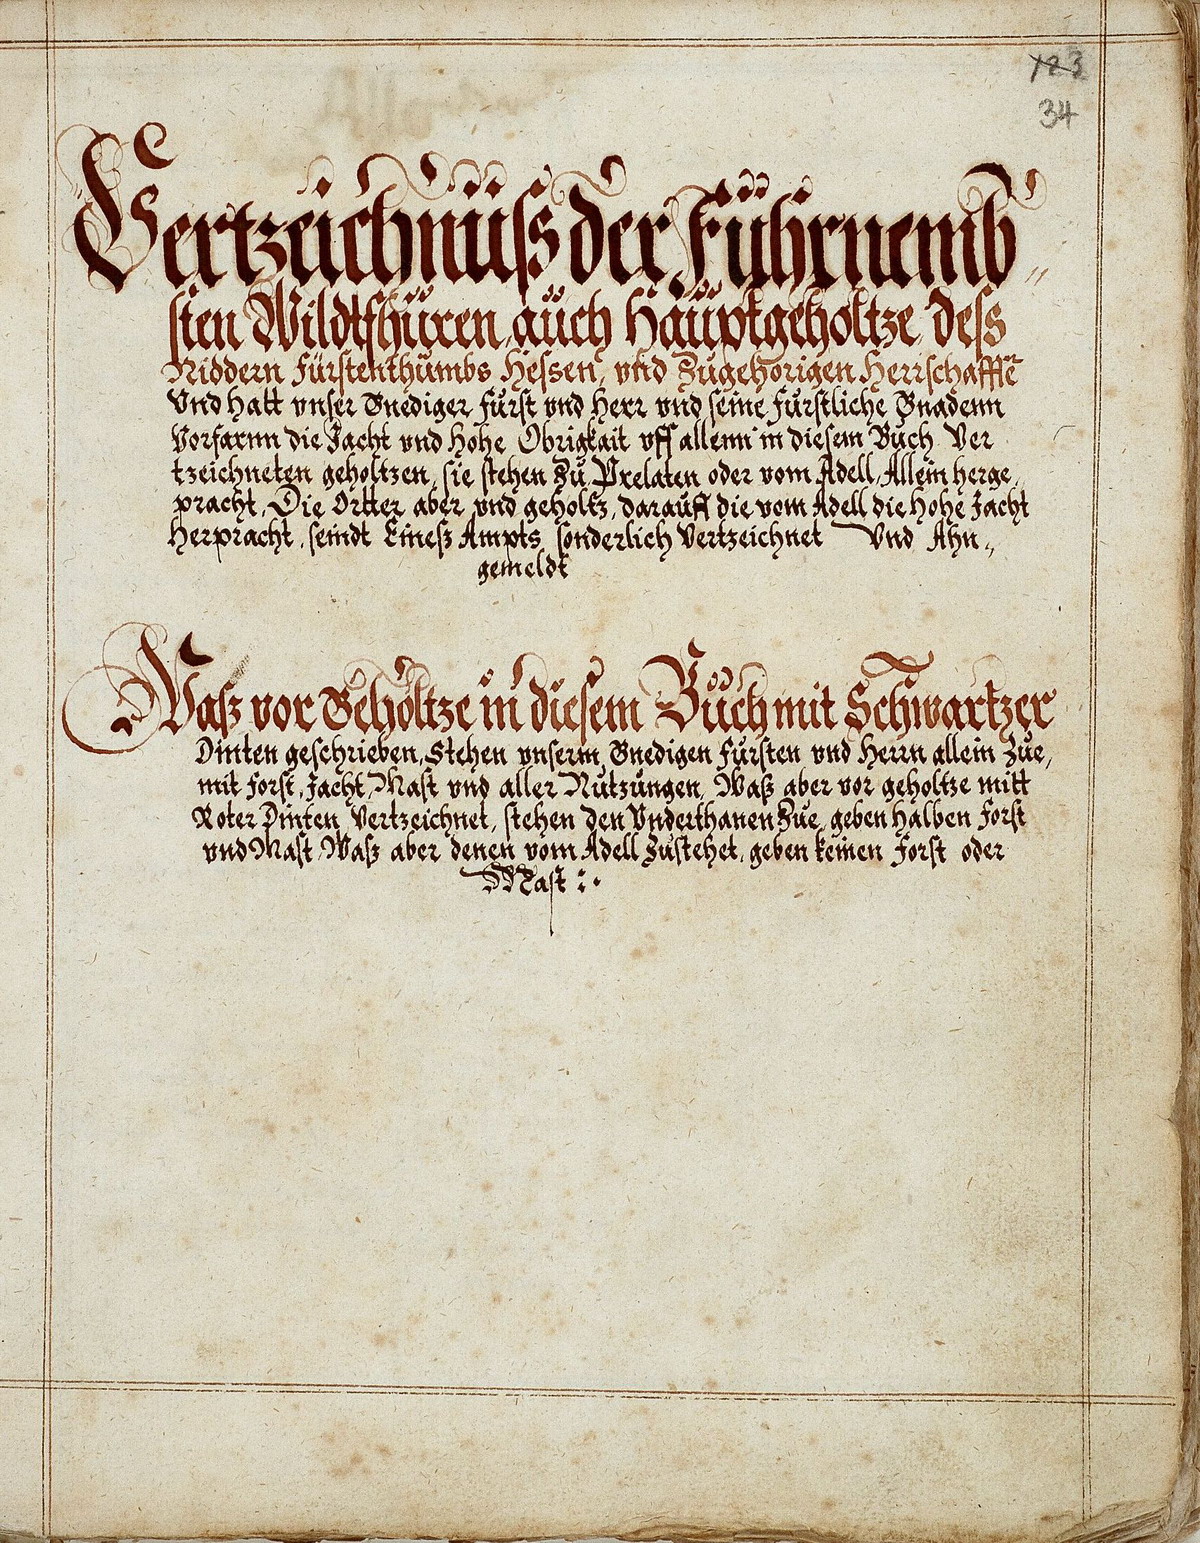 123
34
Vertzeichnüß der Führnemb„
sten Wildtfhüren, auch Haüptgehöltze, deß
Niddern Fürstenthumbs Hessen, vnd Zugehörigen Herrschafften̄
Vnd hatt vnser Gnediger Fürst vnd Herr vnd seine Fürstliche Gnadenn
Vorfarnn die Jacht vnd hohe Obrigkait vff allenn in diesem Buch Ver
tzeichneten geholtzen, sie stehen Zu Prelaten oder vom Adell, Allein herge,
pracht, Die Ortter aber vnd geholtz, darauff die vom Adell die hohe Jacht
herpracht, seindt Eineß Ampts sonderlich Vertzeichnet Vnd Ahn„
gemeldt
Waß vor Gehöltze in diesem Buch mit Schwartzer
Dinten geschrieben, Stehen vnserm Gnedigen Fürsten vnd Herrn allein Zue,
mit Forst, Jacht, Mast vnd aller Nutzüngen, Waß aber vor geholtze mitt
Roter Dinten Vertzeichnet, stehen den Vnderthanen Zue, geben halben Forst
vnd Mast, Waß aber denen vom Adell Zustehet, geben keinen Forst oder
Mast :·